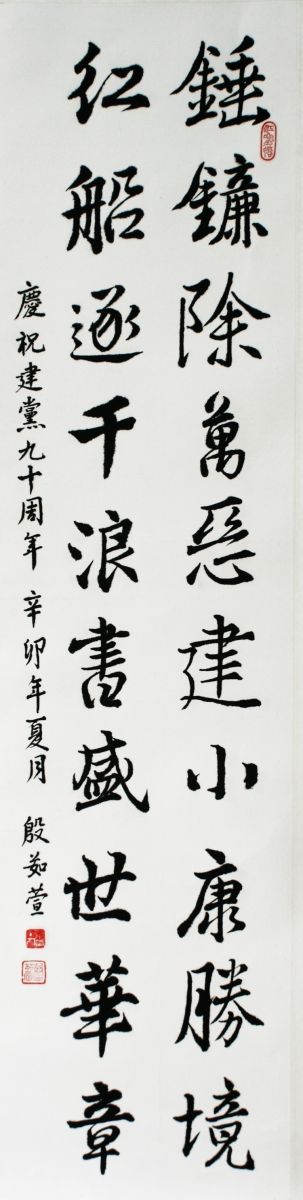 錘鐮除萬惡建小康勝境
紅船逐千浪書盛世華章
慶祝建黨九十周年 辛卯年夏月 殷茹萱